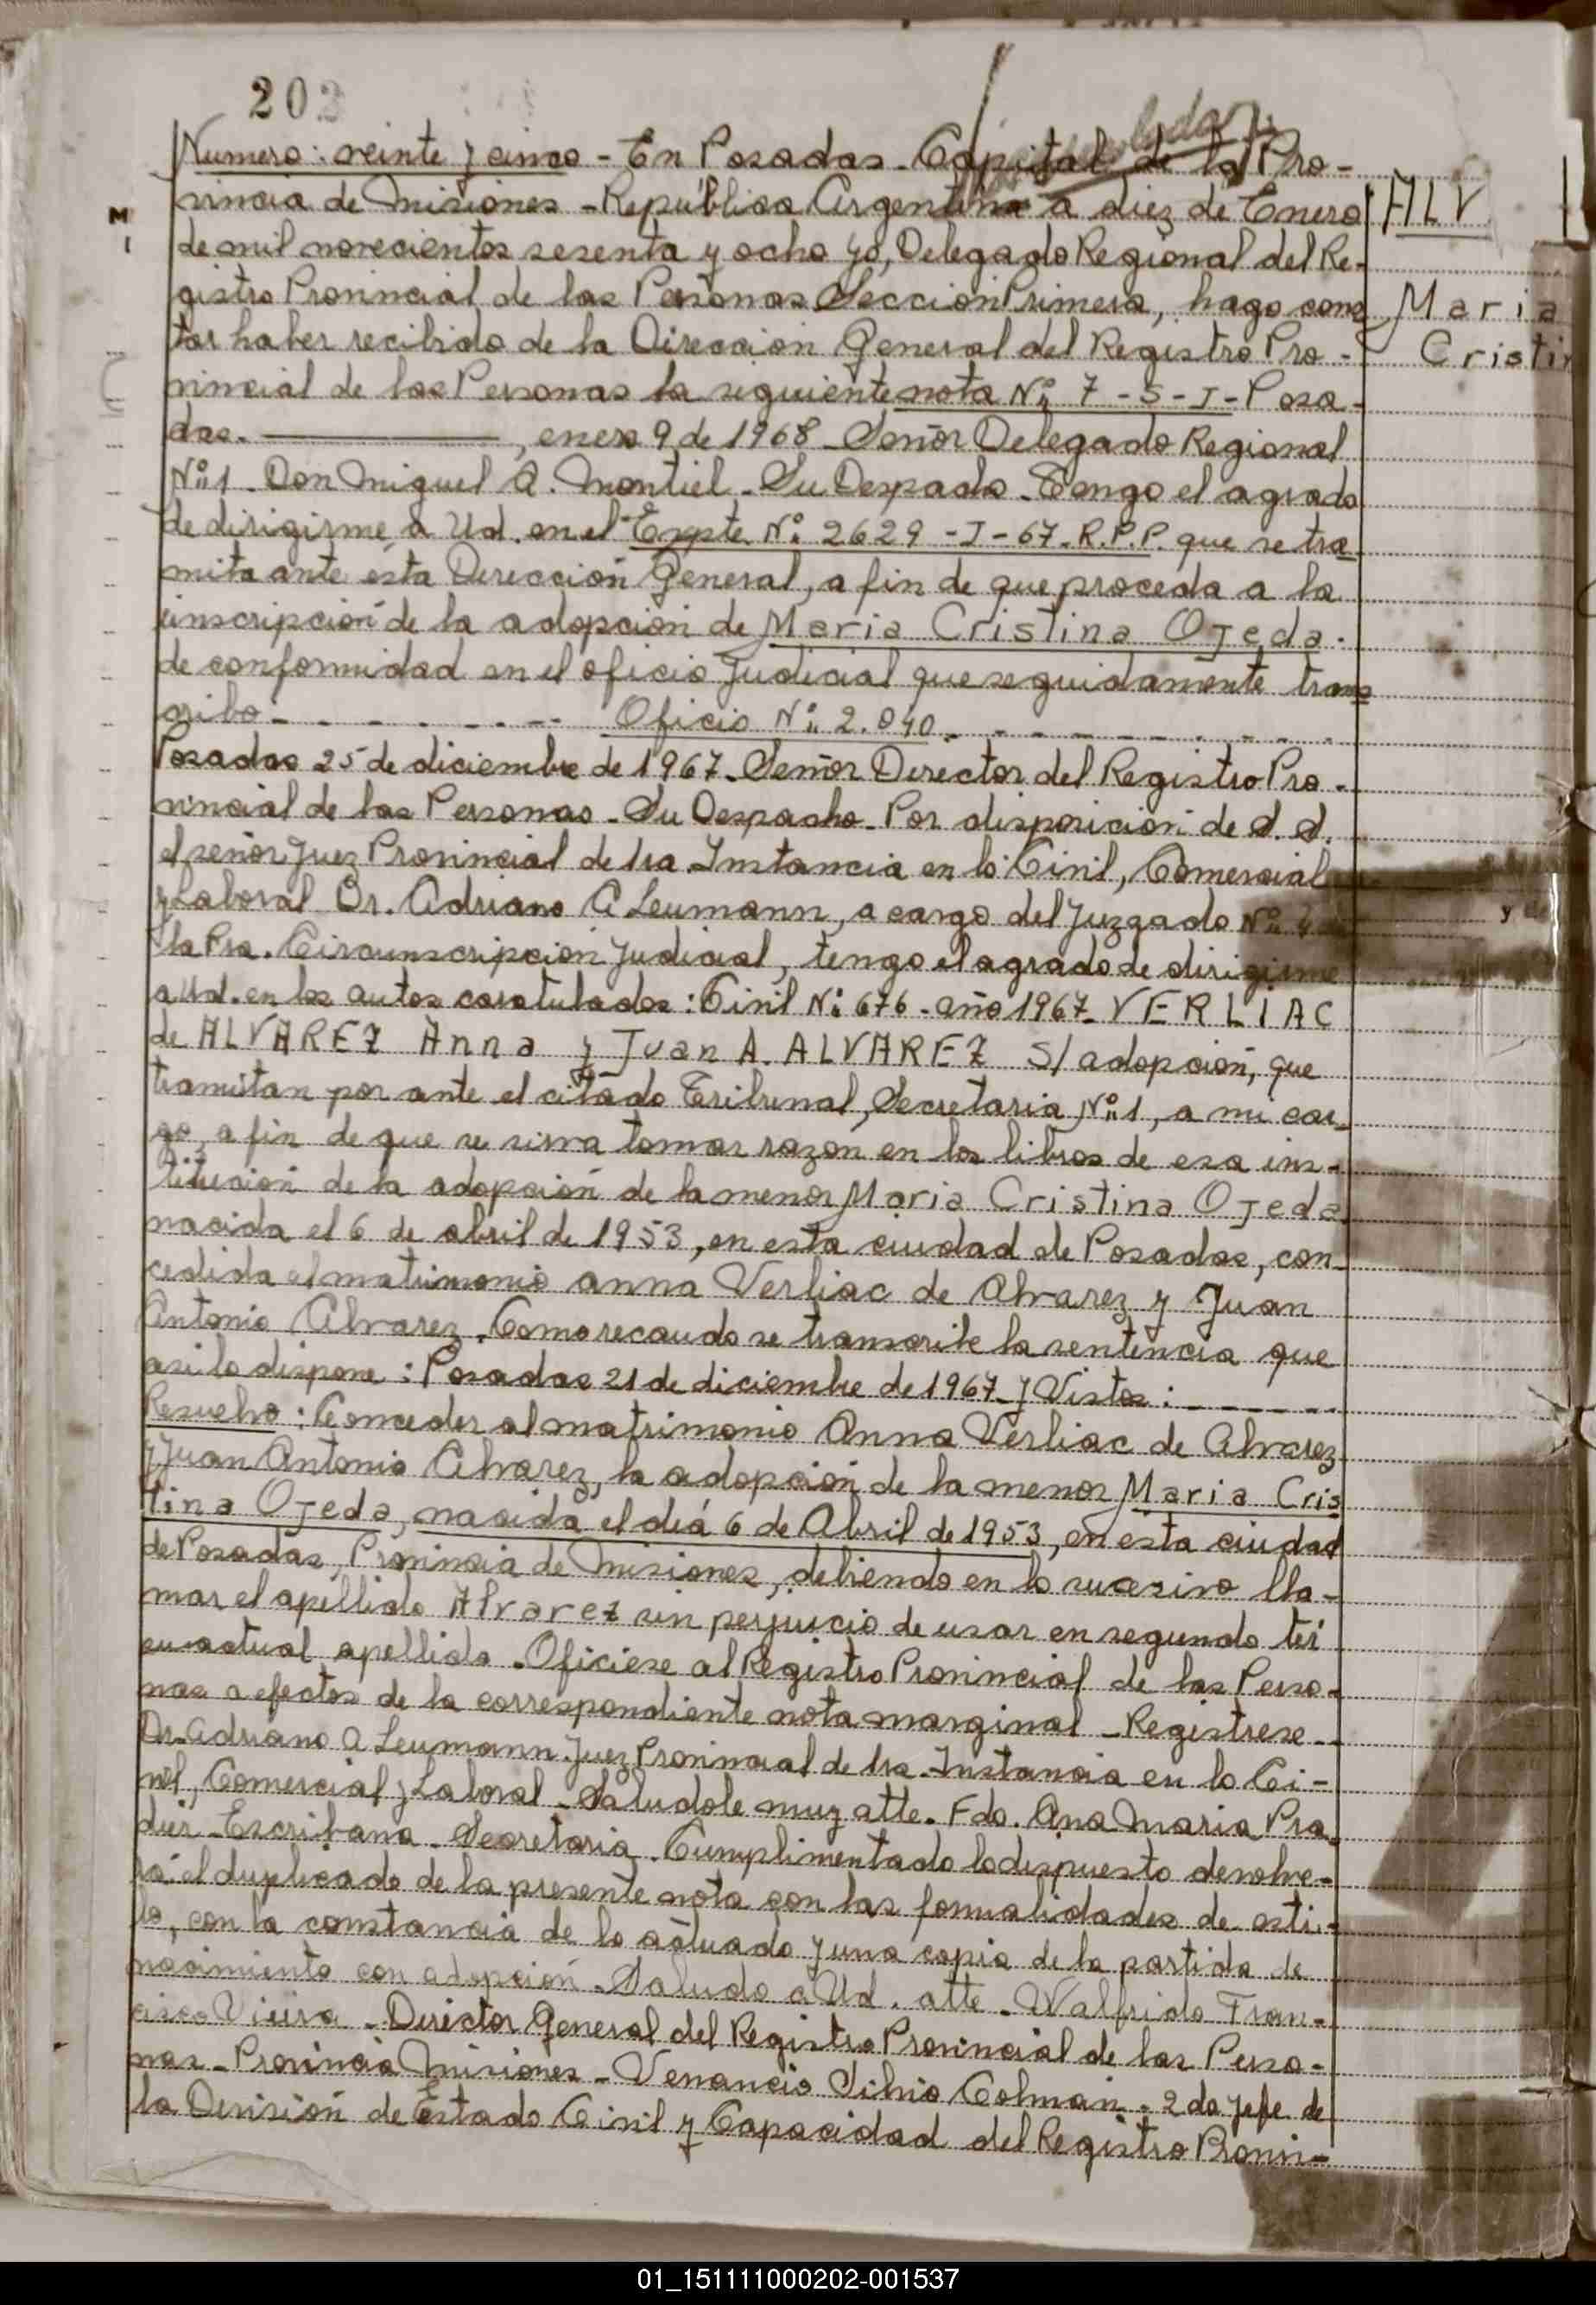 202
Numero: veinte y cinco - En Posadas - Capital de la Pro-
vincia de Misiones - República Argentina a diez de Enero
ALV
M
I
de mil novecientos sesenta y ocho yo, Delegado Regional del Re-
gistro Provincial de las Personas Sección Primera, hago cons
Maria
tar haber recibido de la Dirección General del Registro Pro-
Cristin
vincial de las Personas la siguiente nota Nº 7 - S - I - Posa-
das. ————, enero 9 de 1968 - Señor Delegado Regional
Nº 1 - Don Miguel A. Montiel - Su Despacho - Tengo el agrado
de dirigirme a Ud. en el Expte Nº 2629 - I - 67 - R.P.P. que se tra-
mita ante esta Dirección General, a fin de que proceda a la
inscripción de la adopción de Maria Cristina Ojeda.
de conformidad en el oficio Judicial que seguidamente trans
cribo - - - - - - - - Oficio Nº 2.040. - - - - - - - - -
Posadas 25 de diciembre de 1967 - Señor Director del Registro Pro-
vincial de las Personas - Su Despacho - Por disposición de S. S.
el señor Juez Provincial de 1ra Instancia en lo Civil, Comercial
y Laboral Dr. Adriano A Leumann, a cargo del Juzgado Nº
la Pra. Circunscripción Judicial, tengo el agrado de dirigirme
a Ud. en los autos caratulados: Civil Nº 676 - año 1967 - VERLIAC
de ALVAREZ Anna y Juan A. ALVAREZ S/ adopción, que
tramitan por ante el citado Tribunal, Secretaria Nº 1, a mi car-
go, a fin de que se sirva tomar razón en los libros de esa ins-
titución de la adopción de la menor Maria Cristina Ojeda
nacida el 6 de abril de 1953, en esta ciudad de Posadas, con-
cedida al matrimonio Anna Verliac de Alvarez y Juan
Antonio Alvarez. Como recaudo se transcribe la sentencia que
asi lo dispone: Posadas 21 de diciembre de 1967 - Y Vistos: - - - - -
Resuelvo: Conceder al matrimonio Anna Verliac de Alvarez
y Juan Antonio Alvarez, la adopción de la menor Maria Cris
tina Ojeda, nacida el día 6 de Abril de 1953, en esta ciudad
de Posadas, Provincia de Misiones, debiendo en lo sucesivo lla-
mar el apellido Alvarez sin perjuicio de usar en segundo tér
su actual apellido - Oficiese al Registro Provincial de las Perso-
nas a efectos de la correspondiente nota marginal - Registrese -
Dr. Adriano A Leumann Juez Provincial de 1ra - Instancia en lo Ci-
vil, Comercial y Laboral - Saludole muy atte. Fdo. Ana Maria Pra
dier - Escribana - Secretaria. Cumplimentado lo dispuesto devolve-
rá el duplicado de la presente nota con las formalidades de esti-
lo, con la constancia de lo actuado y una copia de la partida de
nacimiento con adopción - Saludo a Ud. atte - Walfrido Fran-
cisco Vieira - Director General del Registro Provincial de las Perso-
nas - Provincia Misiones - Venancio Silvio Colman - 2do Jefe de
la División de Estado Civil y Capacidad del Registro Provin-
01_151111000202-001537